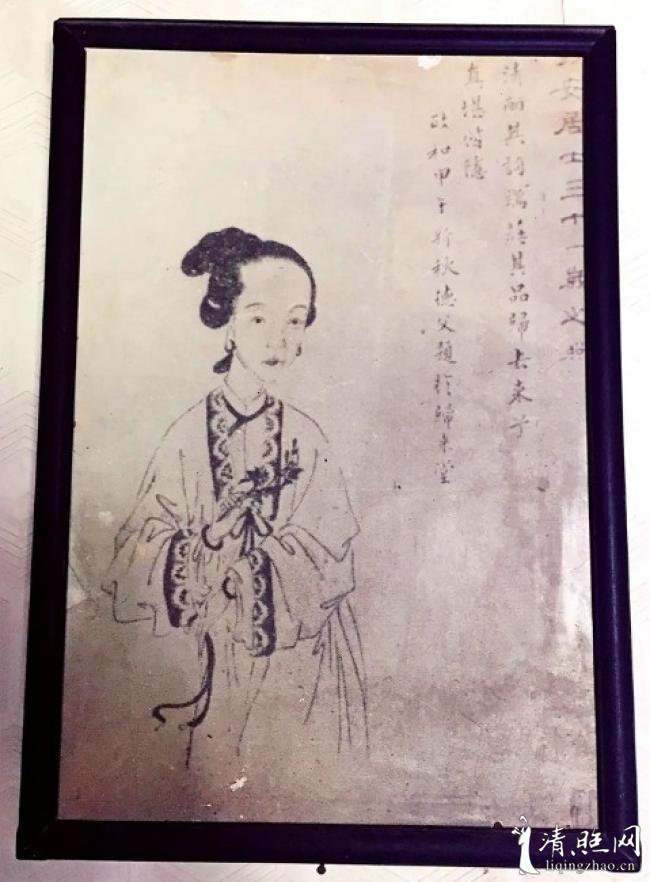 易安居士三十一歲之照
清麗其詞端莊其品歸去來兮
真堪偕隱
政和甲午新秋德父題於歸來堂
清照网
liqingzhao.cn